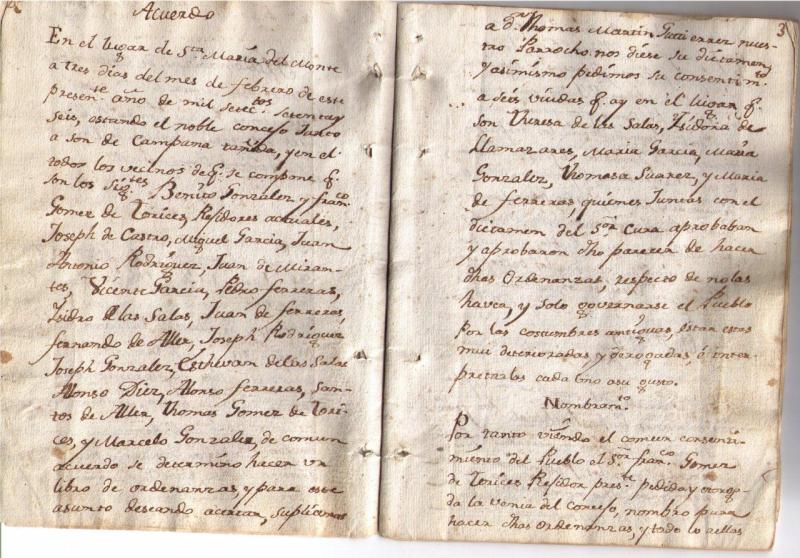 Acuerdo
En el lugar de Sta. María del Monte
a tres dias del mes de febrero de este
presente año de mil setetos. setenta y
seis, estando el noble concejo Junto
a son de Campana tañida, y en el
todos los vecinos de q. se compone q.
son los sigtes. Benito Gonzalez y franco.
Gomez de Torices, Rejidores actuales,
Joseph de Castro, Miguel Garcia, Juan
Antonio Rodriguez, Juan de Miran-
tes, Vicente Garcia, Pedro ferreras,
Isidro de las Salas, Juan de ferreras,
fernando de Aller, Joseph Rodriguez
Joseph Gonzalez, Esthevan de las Salas
Alonso Diez, Alonso ferreras, San-
tos de Aller, Thomas Gomez de Tori-
ces, y Marcelo Gonzalez, de comun
acuerdo se determino hacer un
libro de ordenanzas, y para este
asunto deseando acertar, suplicamos
3
a dn. Thomas Martin Gutierrez nues-
tro Parrocho nos diese su dictamen,
y asimismo pedimos su consentimto.
a seis viudas q. ay en el lugar q.
son Theresa de las Salas, Isidora de
Llamazares, Maria Garcia, Maria
Gonzalez, Thomasa Suarez, y Maria
de ferreras, quienes Juntas con el
dictamen del Sor. Cura aprobaban
y aprobaron dho parecer de hacer
dhas Ordenanzas, respecto de no las
haver, y solo governarse el Pueblo
por las costumbres antiguas, estar estas
mui deterioradas, y derogadas, ó inter-
pretarlas cada uno asu gusto.
Nombramto.
Por tanto viendo el comun consenti-
miento del Pueblo el Sor. franco. Gomez
de Torices Rejidor preste. pedida y otorga-
da la venia del concejo, nombro para
hacer dhas ordenanzas, y todo lo aellas